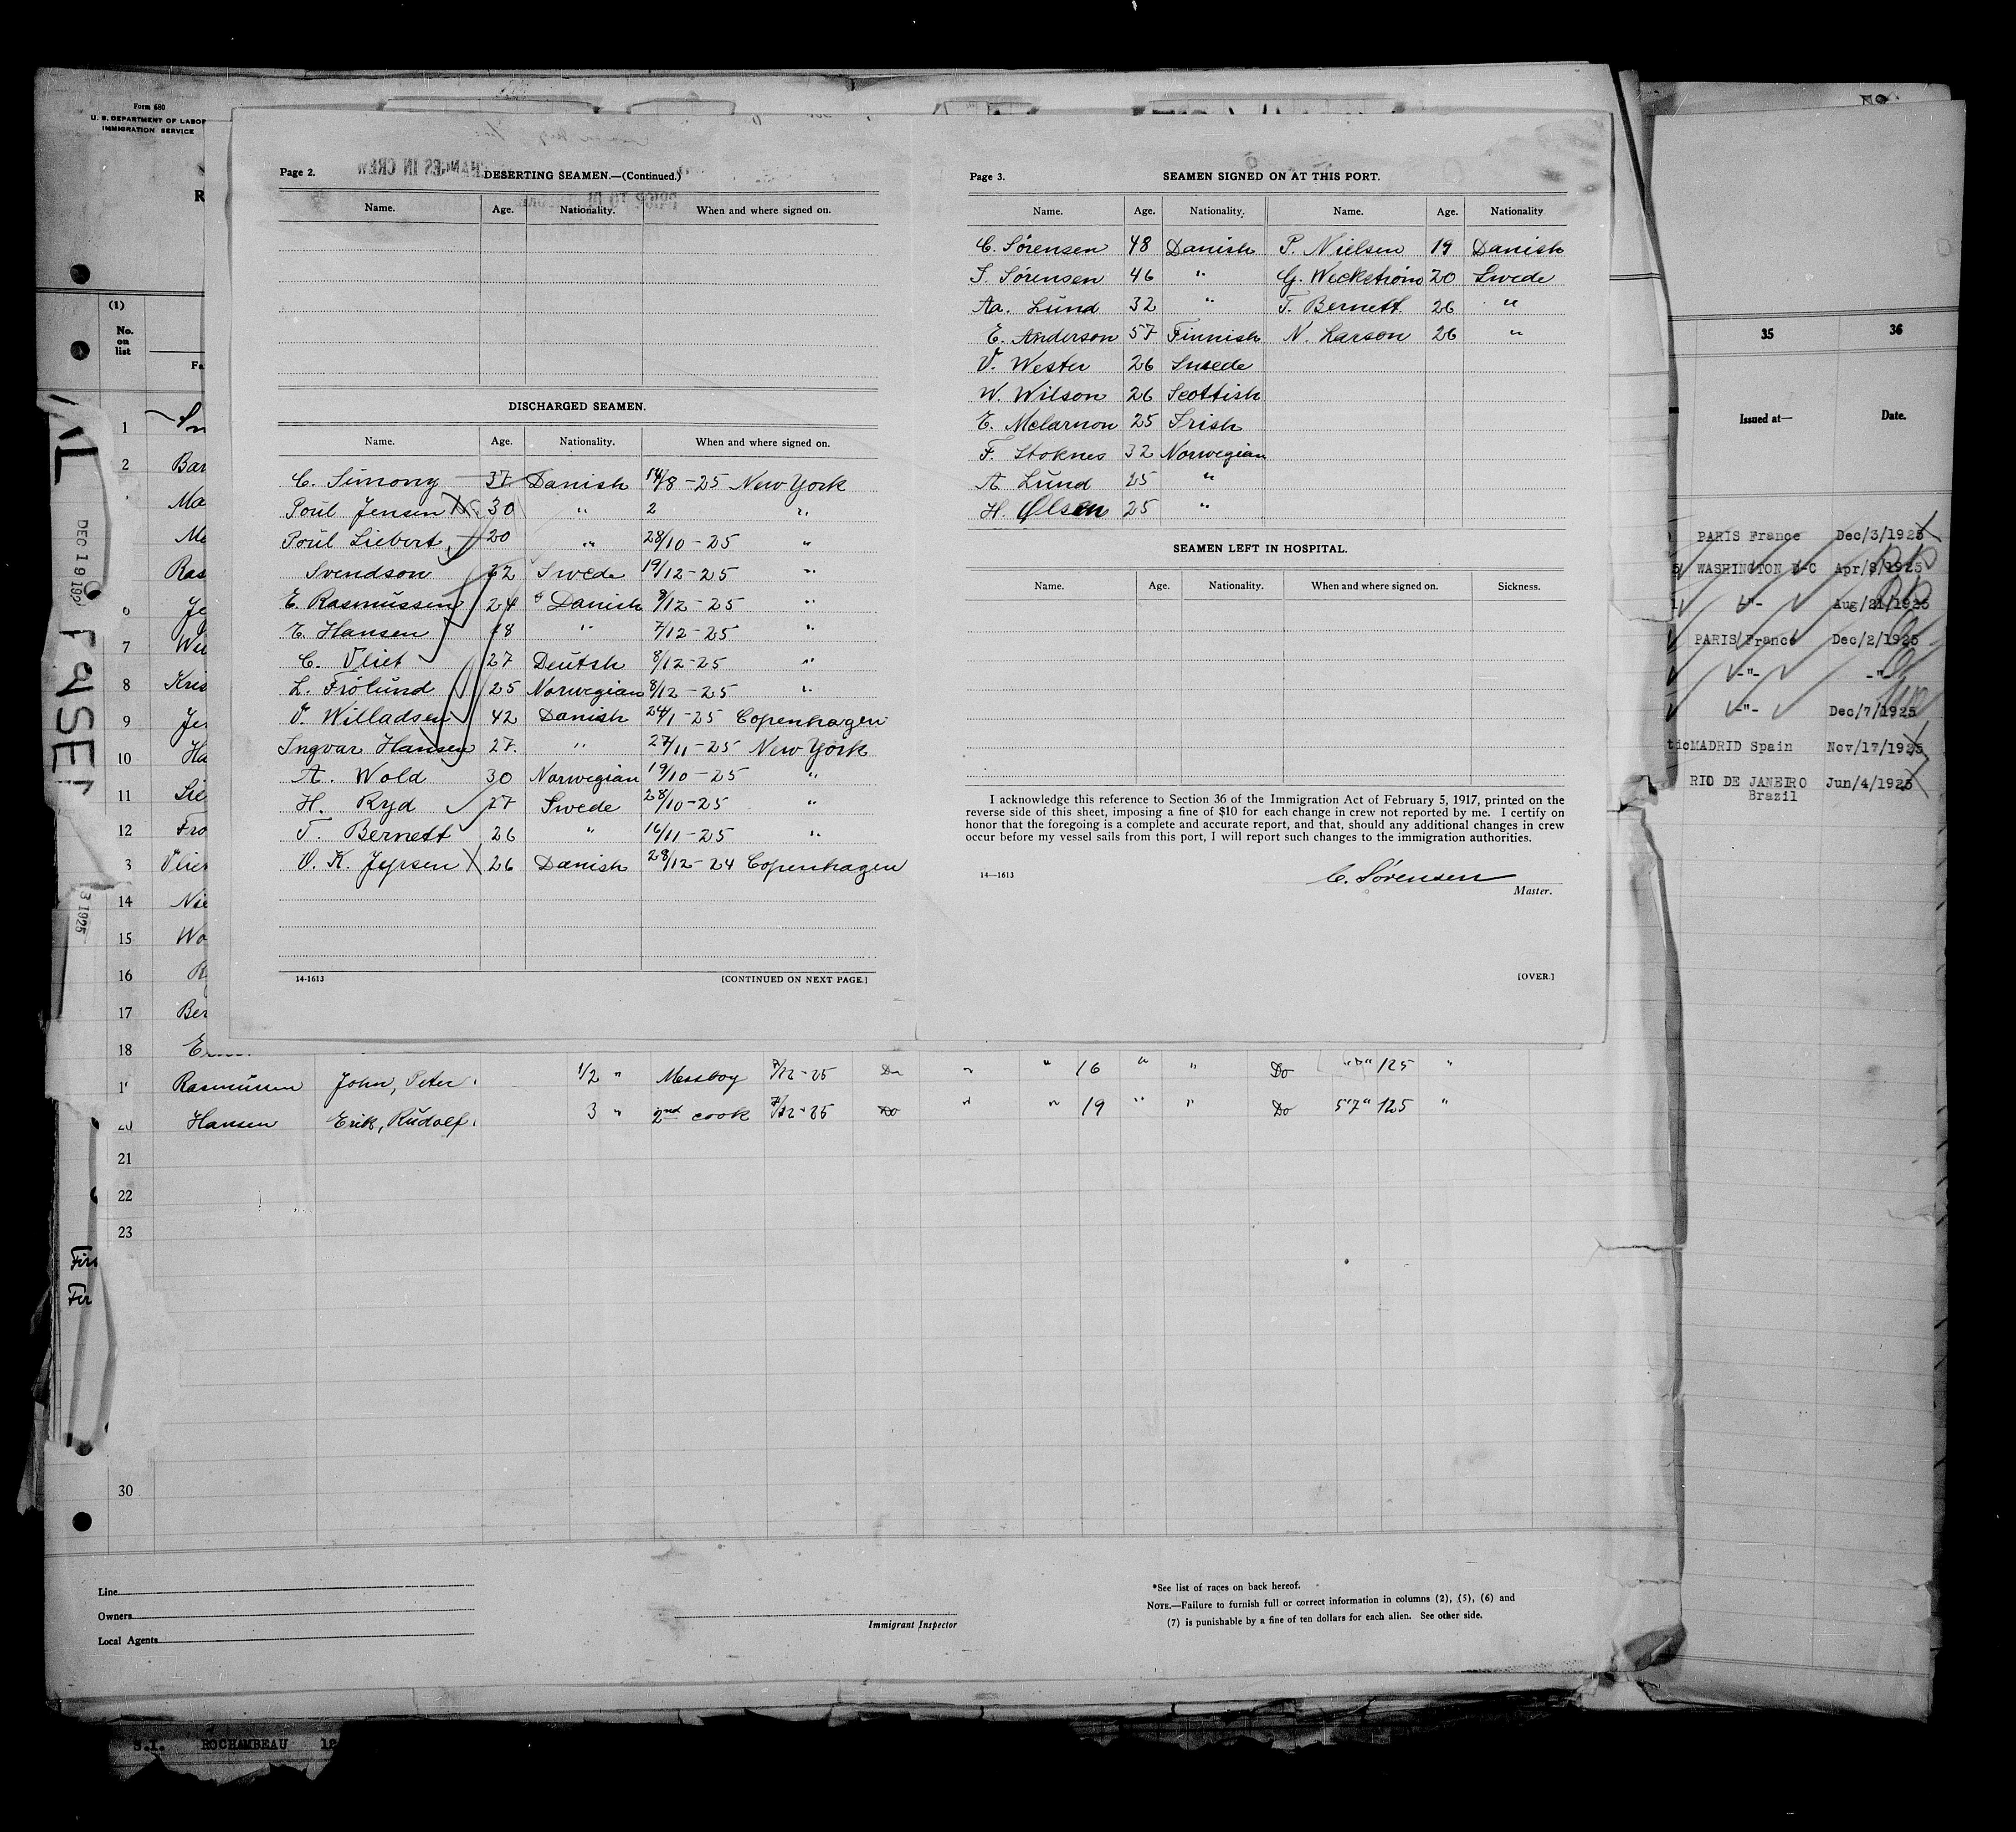 Form 680
U. S. DEPARTMENT OF LABOR
IMMIGRATION SERVICE
Page 2.
DESERTING SEAMEN.—(Continued.)
Name. Age. Nationality. When and where signed on.
DISCHARGED SEAMEN.
Name. Age. Nationality. When and where signed on.
C. Simony 37 Danish 14/8-25 New York
Poul Jensen 30 " 2 "
Poul Liebert 20 " 28/10-25 "
Svendson 22 Swede 19/12-25 "
E. Rasmussen 24 Danish 9/12-25 "
E. Hansen 18 " 7/12-25 "
C. Vliet 27 Deutsh 8/12-25 "
L. Frölund 25 Norwegian 8/12-25 "
V. Willadsen 42 Danish 24/1-25 Copenhagen
Ingvar Hansen 27. " 27/11-25 New York
A. Wold 30 Norwegian 19/10-25 "
H. Ryd 27 Swede 28/10-25 "
T. Bernett 26 " 16/11-25 "
O. K. Jyrsen 26 Danish 28/12-24 Copenhagen
14-1613 [CONTINUED ON NEXT PAGE.]
Page 3.
SEAMEN SIGNED ON AT THIS PORT.
Name. Age. Nationality. Name. Age. Nationality
C. Sörensen 48 Danish P. Nielsen 19 Danish
S. Sörensen 46 " G. Weckström 20 Swede
Aa. Lund 32 " T. Bernett. 26 "
E. Anderson 57 Finnish N. Larson 26 "
V. Wester 26 Swede
W. Wilson 26 Scottish
E. Mclarnon 25 Irish
F. Stoknes 32 Norwegian
A Lund 25 "
H. Olsen 25 "
SEAMEN LEFT IN HOSPITAL.
Name. Age. Nationality. When and where signed on. Sickness.
I acknowledge this reference to Section 36 of the Immigration Act of February 5, 1917, printed on the
reverse side of this sheet, imposing a fine of $10 for each change in crew not reported by me. I certify on
honor that the foregoing is a complete and accurate report, and that, should any additional changes in crew
occur before my vessel sails from this port, I will report such changes to the immigration authorities.
14—1613
C. Sörensen
Master.
[OVER.]
(1)
No.
on
list
1
2 Bar
Ma
Ras
7
8 Kris
9 Jer
10 Ha
11 Lie
12 Fro
3 Vlier
14 Nie
15 Wo
16
17 Ber
18
Rasmussen John, Peter 1/2 " Messboy 9/12-25 " " 16 " " Do 125 "
Hansen Erik, Rudolf 3 " 2nd cook 7/12-25 Do " " 19 " " Do 5"7" 125 "
21
22
23
30
35 36
Issued at— Date.
PARIS France Dec/3/1925
WASHINGTON D-C Apr/8/1925
-"- Aug/21/1925
PARIS France Dec/2/1925
-"- -"-
-"- Dec/7/1925
MADRID Spain Nov/17/1925
RIO DE JANEIRO Jun/4/1925
Brazil
Line
Owners
Local Agents
Immigrant Inspector
*See list of races on back hereof.
NOTE.—Failure to furnish full or correct information in columns (2), (5), (6) and
(7) is punishable by a fine of ten dollars for each alien. See other side.
S.I. ROCHAMBEAU 12